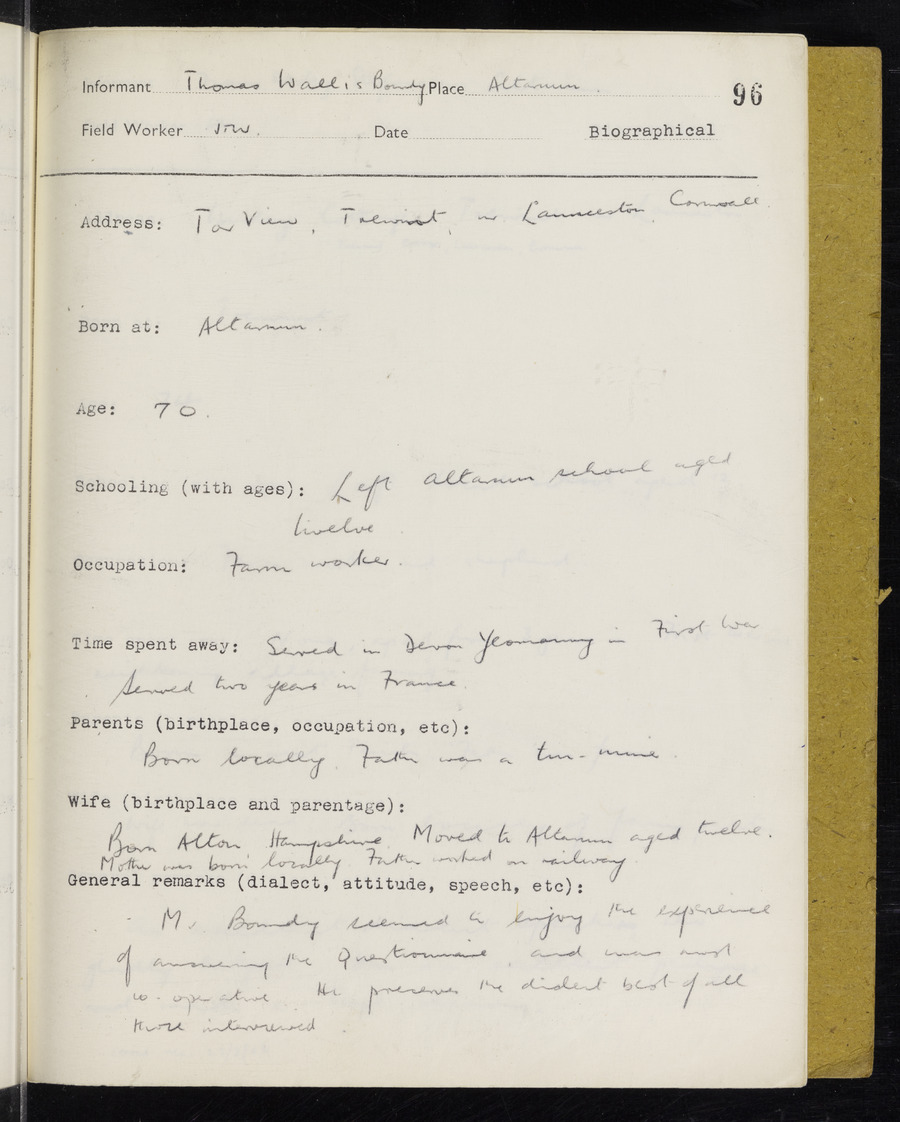 Informant Thomas Wallis Boundy Place Altarnun.
96
Field Worker JTW. Date Biographical
Address: Tor View, Trewint, nr Launceston, Cornwall.
Born at: Altarnun.
Age: 70.
Schooling (with ages): Left Altarnun school aged
twelve.
Occupation: Farm worker.
Time spent away: Served in Devon Yeomanry in First War
Served two years in France.
Parents (birthplace, occupation, etc):
Born locally. Father was a tin-miner.
Wife (birthplace and parentage):
Born Alton Hampshire. Moved to Altarnun aged twelve.
Mother was born locally. Father worked on railway.
General remarks (dialect, attitude, speech, etc):
Mr Boundy seemed to enjoy the experience
of answering the Questionnaire, and was most
co-operative. He preserves the dialect best of all
those interviewed.